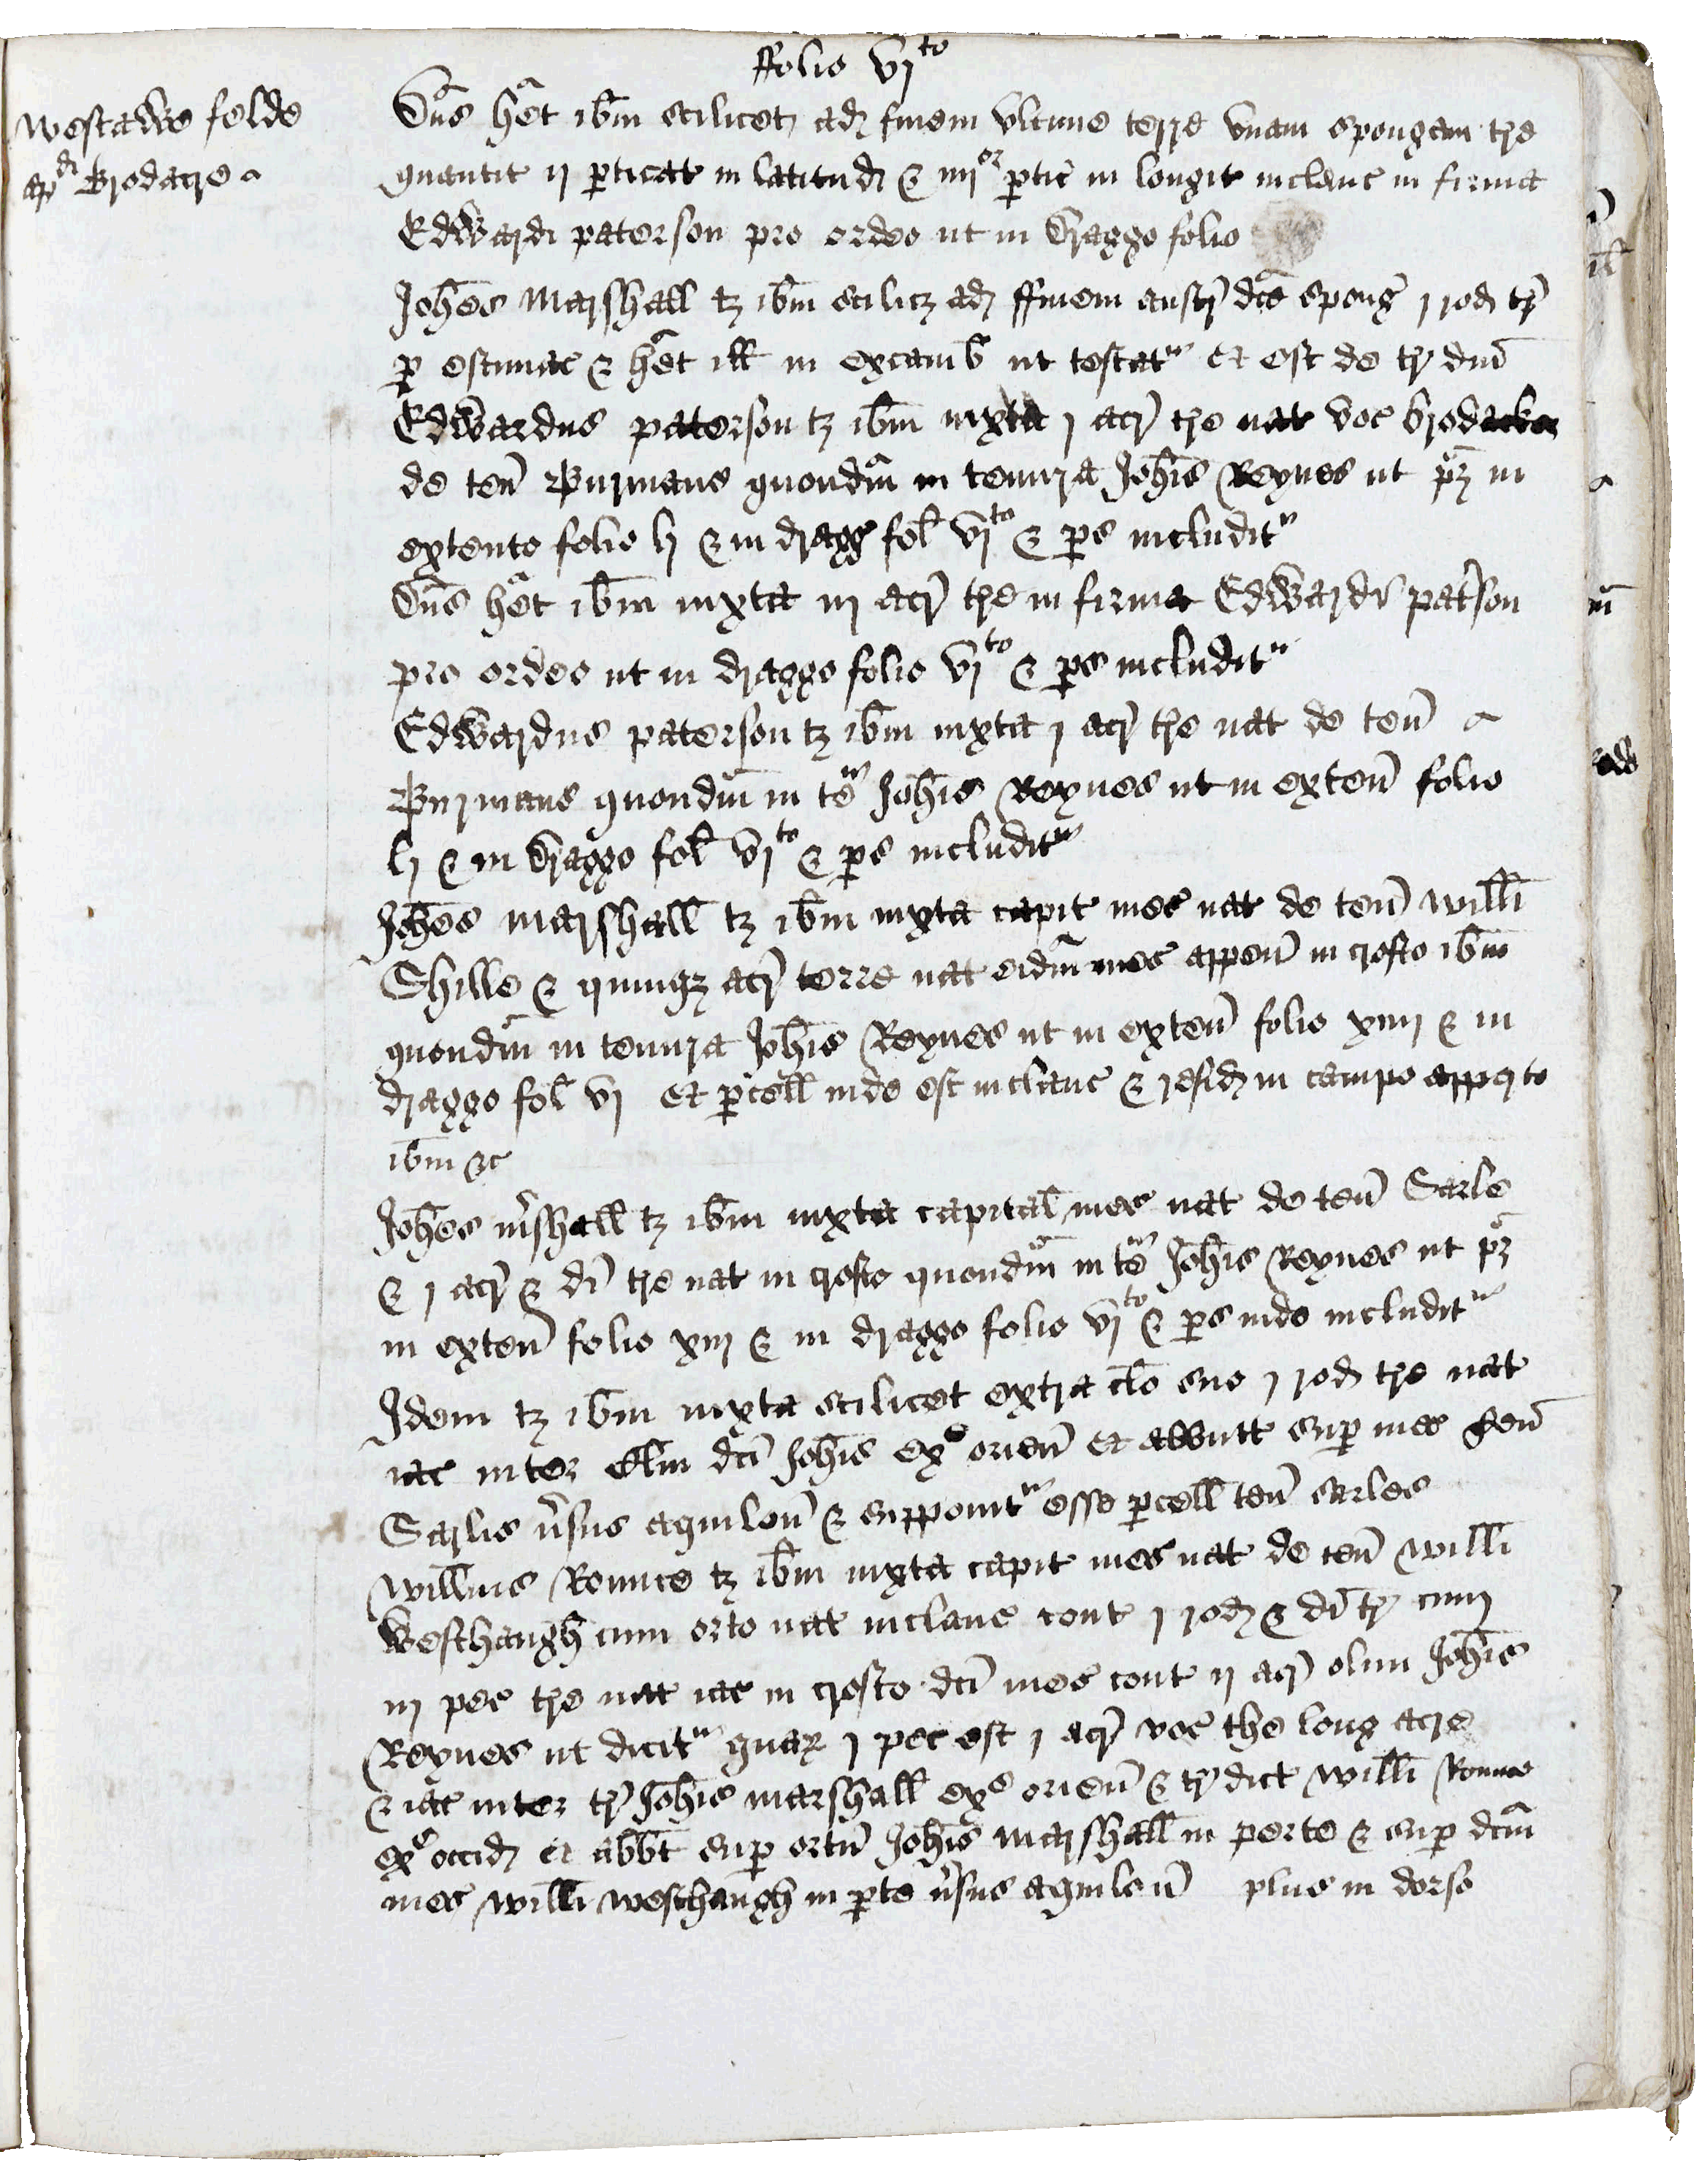 ffolio vjto
Westawe felde
apd Brodacre
Dns het ibm scilicet ad finem vltime terre vnam spongeam tre
quantit ij perticat in latitud & iiijor ptic in longit inclaus in firma
Edwardi paterson pro ordeo ut in Dragge folio
Johes Marshall tz ibm scilicz ad ffinem austr dce spong j rod tr
p estimac & het ill in excamb ut testatr Et est de tr dni
Edwardus paterson tz ibm iuxta j acr tre nat voc brodacker
de ten Burmans quondam in tenura Johis Reynes ut pz in
extento folio lj & in dragg fol vjto & ps includitr
Dns het ibm iuxta iij acr tre in firma Edwardi patson
pro ordeo ut in dragge folio vjto & ps includitr
Edwardus paterson tz ibm iuxta j acr tre nat de ten
Burmans quondm in te Johis Reynes ut in exten folio
lj & in dragge fol vjto & ps includitr
Johes Marshall tz ibm iuxta capit mes nat de ten Willi
Shille & quinqz acr terre nat eidm mes appen in crofto ibm
quondm in tenura Johis Reynes ut in exten folio xiiij & in
dragge fol vj Et pcell inde est inclaus & resid in campo apperto
ibm &c
Johes mshall tz ibm iuxta capital mes nat de ten Sarle
& j acr & di tre nat in crofto quondm in te Johis Reynes ut pz
in exten folio xiij & in dragge folio vjto & ps inde includitr
Idem tz ibm iuxta scilicet extra clo suo j rod tre nat
iac inter clm dci Johis ex orien Et abbutt sup mes ten
Sarlis vsus aquilon & supponitr esse pcell ten Sarles
Willms Rounce tz ibm iuxta capit mes nat de ten Willi
Westhaugh cum orto nat inclaus cont j rod & di tr cum
iij pec tre nat iac in crofto dci mes cont ij acr olim Johis
Reynes ut dicitr quar j pec est j acr voc the long acre
& iac inter tr Johis marshall exe orien & tr dict Willi Rounce
exe occid et abbt sup ortu Johis Marshall in perte & sup dcm
mes Willi Westhaugh in pte vsus aquilon plus in dorso